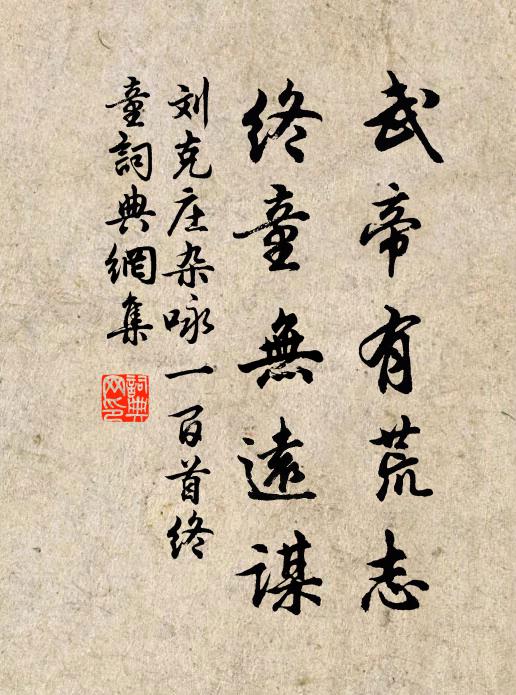 武帝有荒志
终童無遠謀
刘克庄杂咏一百首终
童詞典網集
詞典
网印